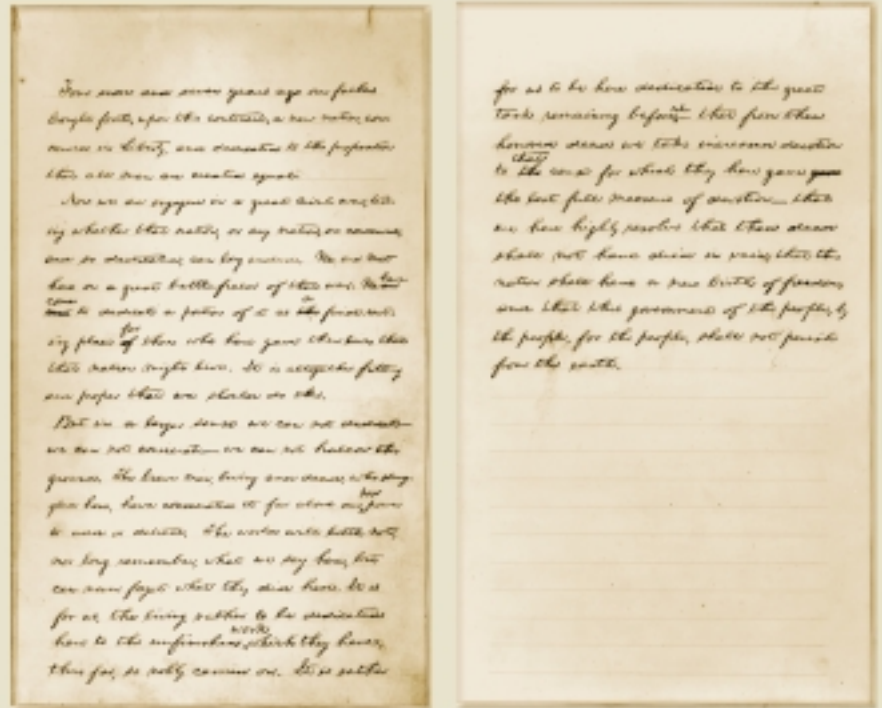 Four score and seven years ago our fathers
brought forth, upon this continent, a new nation, con-
ceived in Liberty, and dedicated to the proposition
that all men are created equal.
Now we are engaged in a great civil war, test-
ing whether that nation, or any nation, so conceived,
and so dedicated, can long endure. We are met
here on a great battlefield of that war. We have
come to dedicate a portion of it as a final rest-
ing place for those who here gave their lives that
that nation might live. It is altogether fitting
and proper that we should do this.
But in a larger sense we can not dedicate—
we can not consecrate—we can not hallow this
ground. The brave men, living and dead, who strug-
gled here, have consecrated it far above our poor power
to add or detract. The world will little note,
nor long remember, what we say here, but
can never forget what they did here. It is
for us, the living, rather to be dedicated
here to the unfinished work which they have,
thus far, so nobly carried on. It is rather
for us to be here dedicated to the great
task remaining before us—that from these
honored dead we take increased devotion
to that cause for which they here gave gave
the last full measure of devotion—that
we here highly resolve that these dead
shall not have died in vain; that this
nation shall have a new birth of freedom;
and that this government of the people, by
the people, for the people, shall not perish
from the earth.